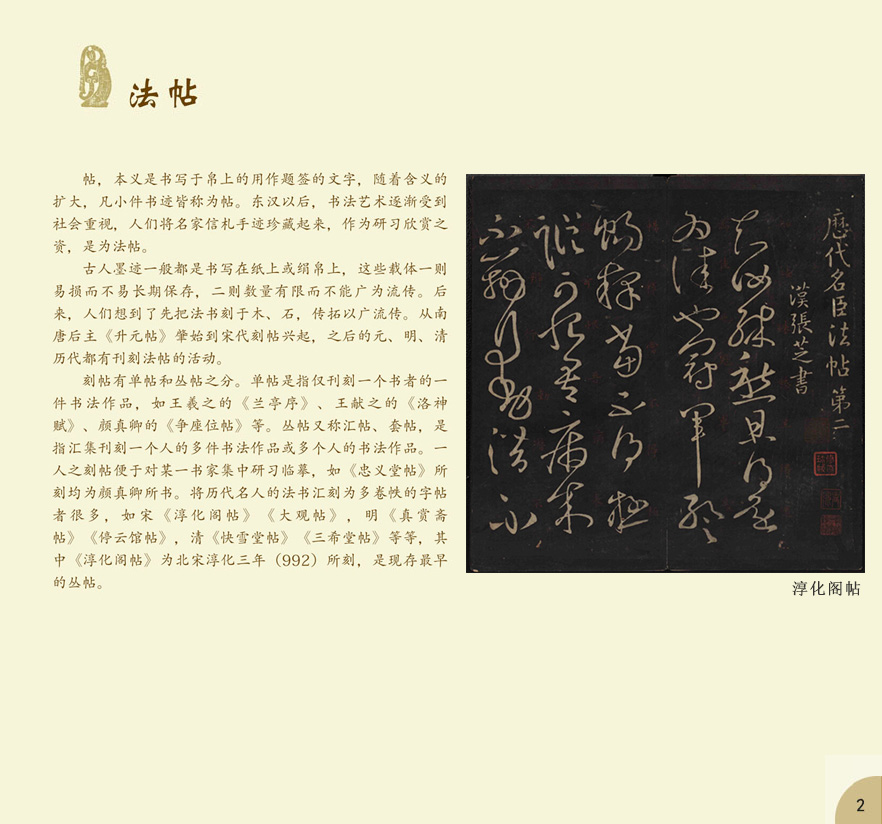 法帖
帖，本义是书写于帛上的用作题签的文字，随着含义的
扩大，凡小件书迹皆称为帖。东汉以后，书法艺术逐渐受到
社会重视，人们将名家信札手迹珍藏起来，作为研习欣赏之
资，是为法帖。
古人墨迹一般都是书写在纸上或绢帛上，这些载体一则
易损而不易长期保存，二则数量有限而不能广为流传。后
来，人们想到了先把法书刻于木、石，传拓以广流传。从南
唐后主《升元帖》肇始到宋代刻帖兴起，之后的元、明、清
历代都有刊刻法帖的活动。
刻帖有单帖和丛帖之分。单帖是指仅刊刻一个书者的一
件书法作品，如王羲之的《兰亭序》、王献之的《洛神
赋》、颜真卿的《争座位帖》等。丛帖又称汇帖、套帖，是
指汇集刊刻一个人的多件书法作品或多个人的书法作品。一
人之刻帖便于对某一书家集中研习临摹，如《忠义堂帖》所
刻均为颜真卿所书。将历代名人的法书汇刻为多卷帙的字帖
者很多，如宋《淳化阁帖》《大观帖》，明《真赏斋
帖》《停云馆帖》，清《快雪堂帖》《三希堂帖》等等，其
中《淳化阁帖》为北宋淳化三年（992）所刻，是现存最早
的丛帖。
歷代名臣法帖第二
漢張芝書
淳化阁帖
2